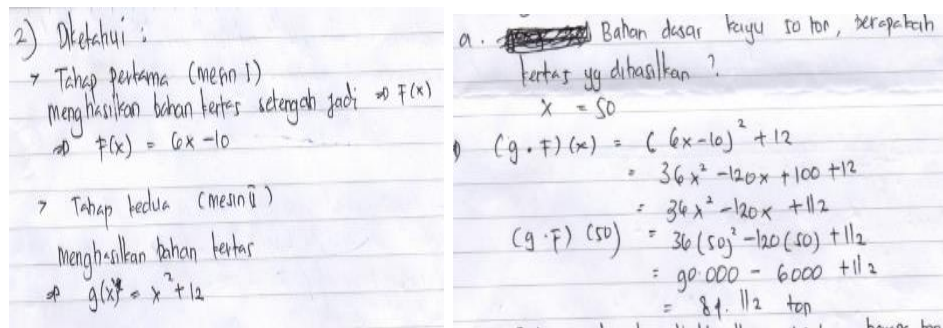 2) Diketahui :
> Tahap pertama (mesin I)
menghasilkan bahan kertas setengah jadi ⇒ F(x)
⇒ F(x) = 6x - 10
> Tahap kedua (mesin II)
menghasilkan bahan kertas
⇒ g(x) = x² + 12
a. Bahan dasar kayu 50 ton, berapakah
kertas yg dihasilkan ?
x = 50
(g . F) (x) = (6x - 10)² + 12
= 36x² - 120x + 100 + 12
= 36x² - 120x + 112
(g . F) (50) = 36 (50)² - 120 (50) + 112
= 90.000 - 6000 + 112
= 84. 112 ton